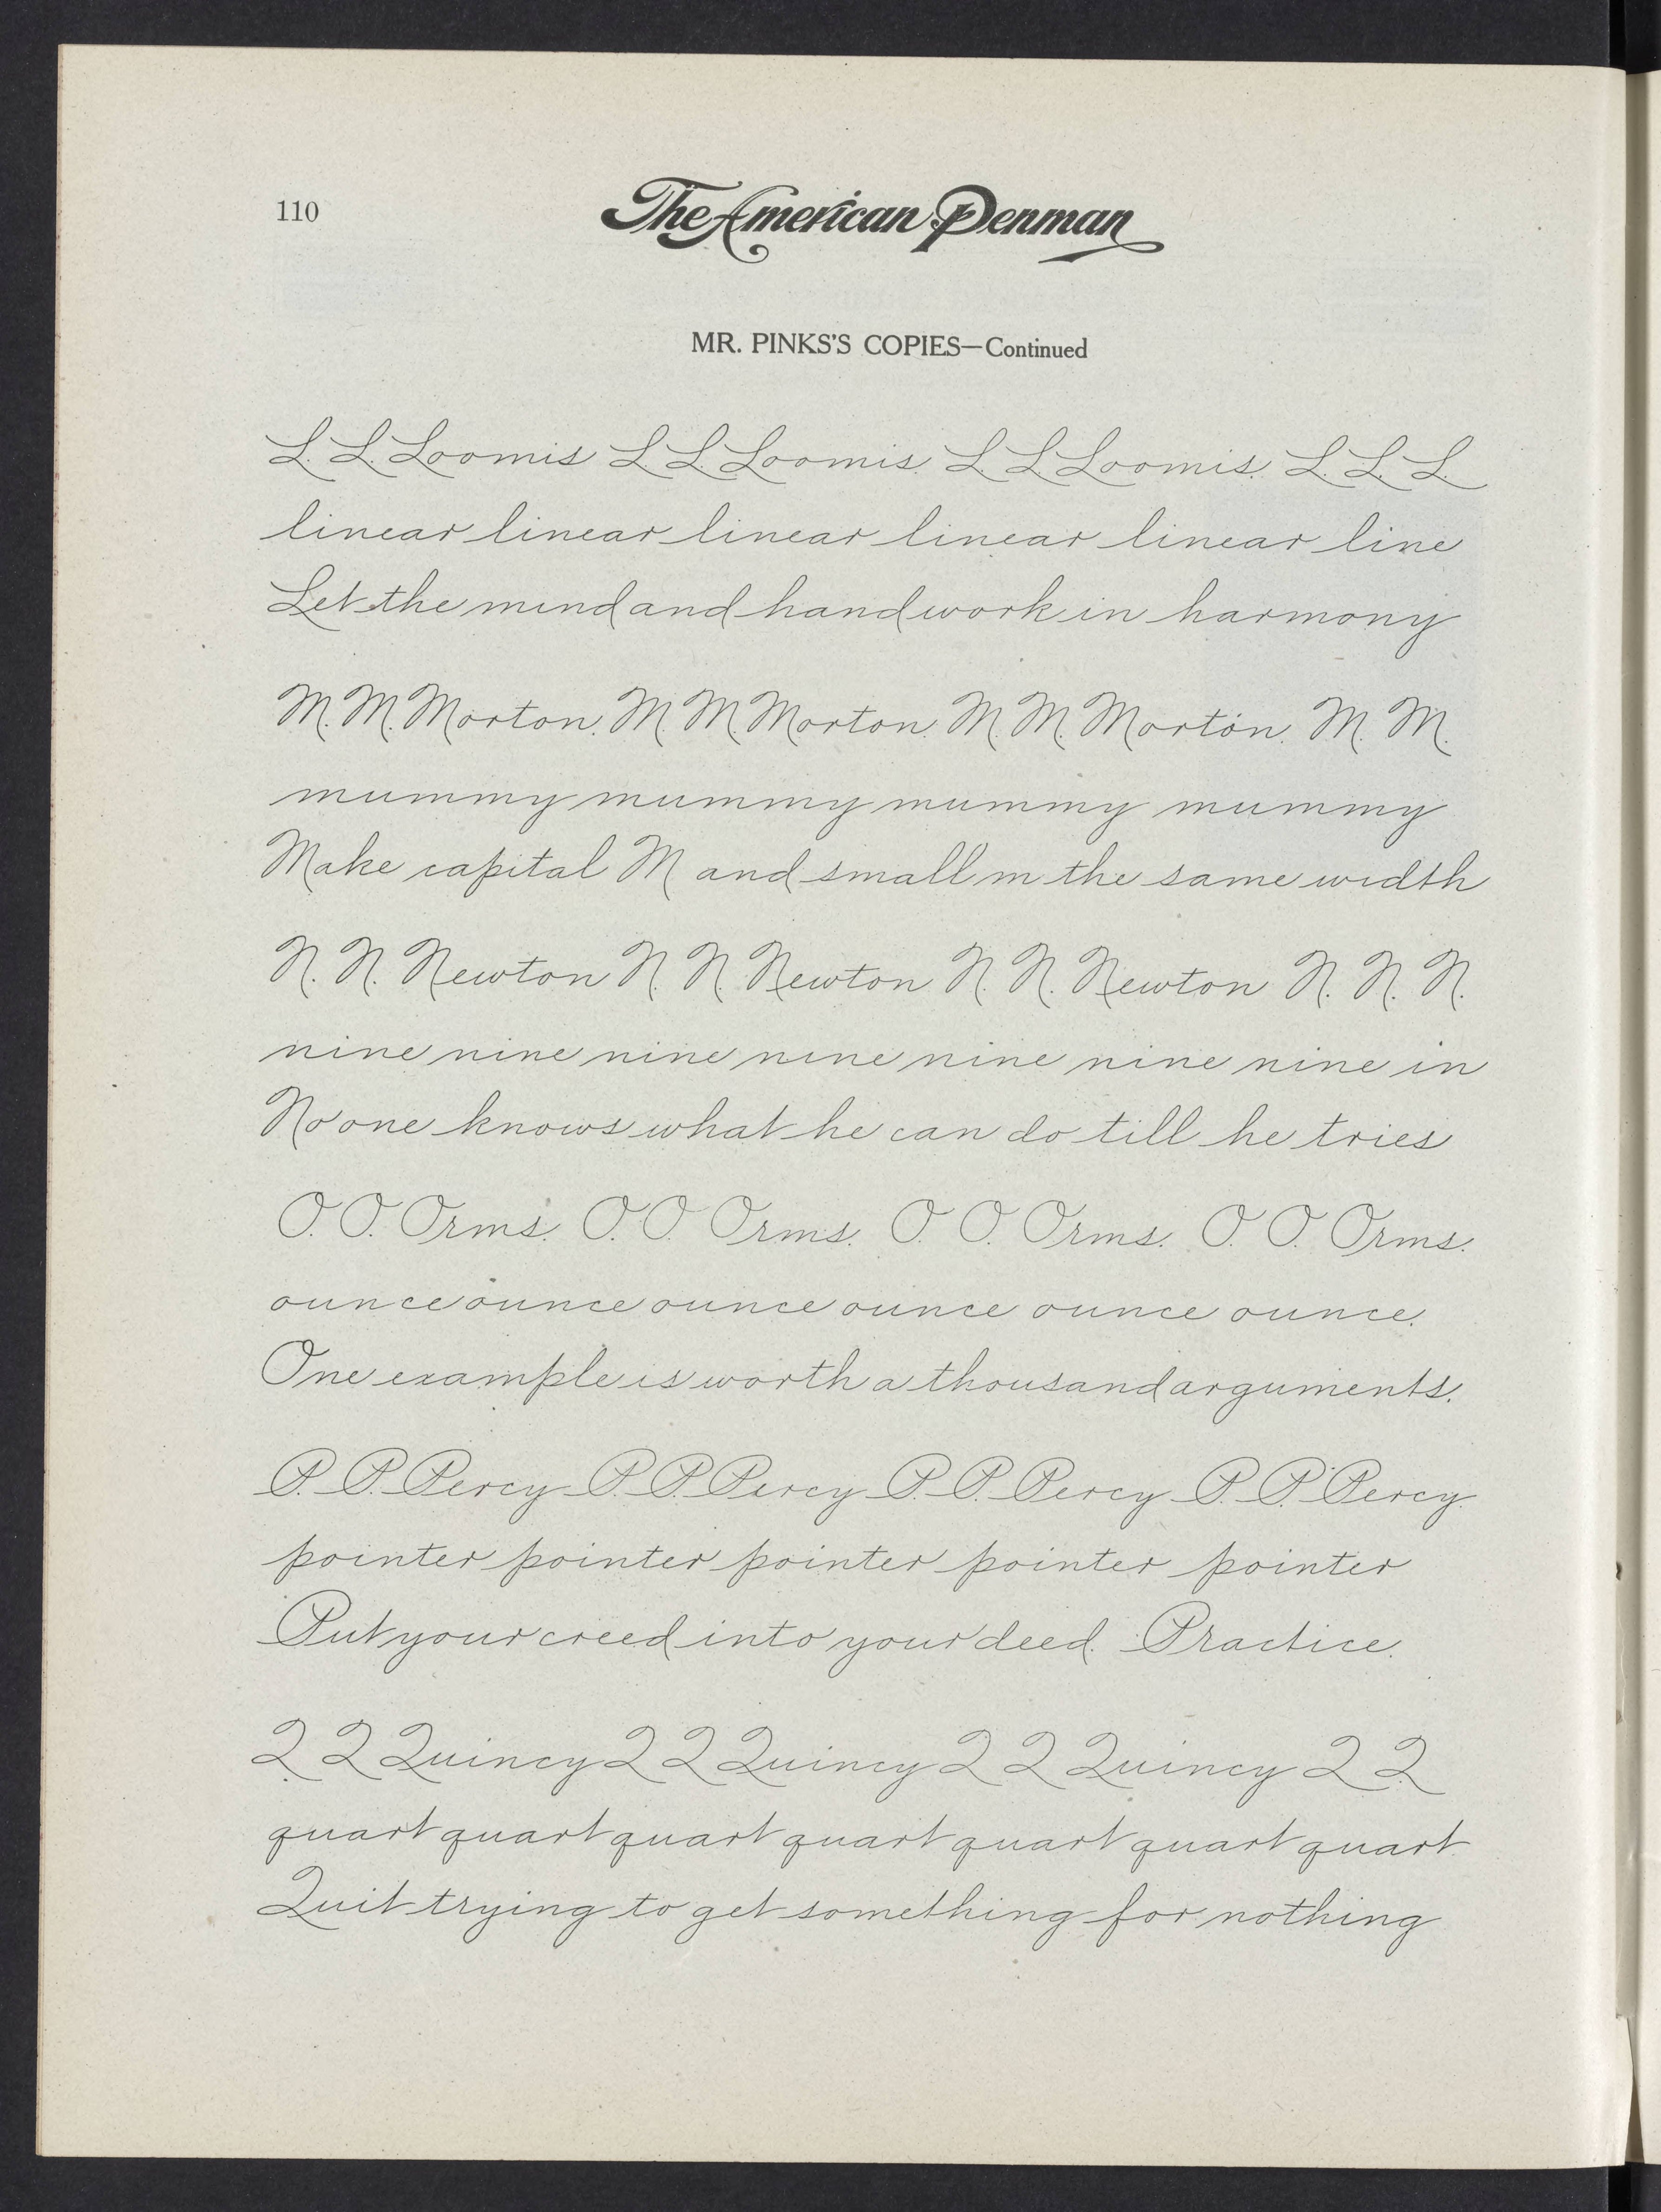 110
The American Penman
MR. PINKS'S COPIES—Continued
L. L. Loomis L L. Loomis. L. L Loomis. L. L. L.
linear linear linear linear linear line
Let the mind and hand work in harmony
M. M. Morton. M. M. Morton. M. M. Morton. M. M.
mummy mummy mummy mummy
Make capital M and small m the same width
N. N. Newton N. N. Newton N. N. Newton N. N. N.
nine nine nine nine nine nine nine in
No one knows what he can do till he tries
O. O. Orms. O. O. Orms. O. O. Orms. O. O. Orms.
ounce ounce ounce ounce ounce ounce.
One example is worth a thousand arguments.
P. P. Percy P. P. Percy P. P. Percy P. P. Percy.
pointer pointer pointer pointer pointer
Put your creed into your deed. Practice.
Q Q Quincy Q Q Quincy Q Q Quincy Q Q.
quart quart quart quart quart quart quart
Quit trying to get something for nothing